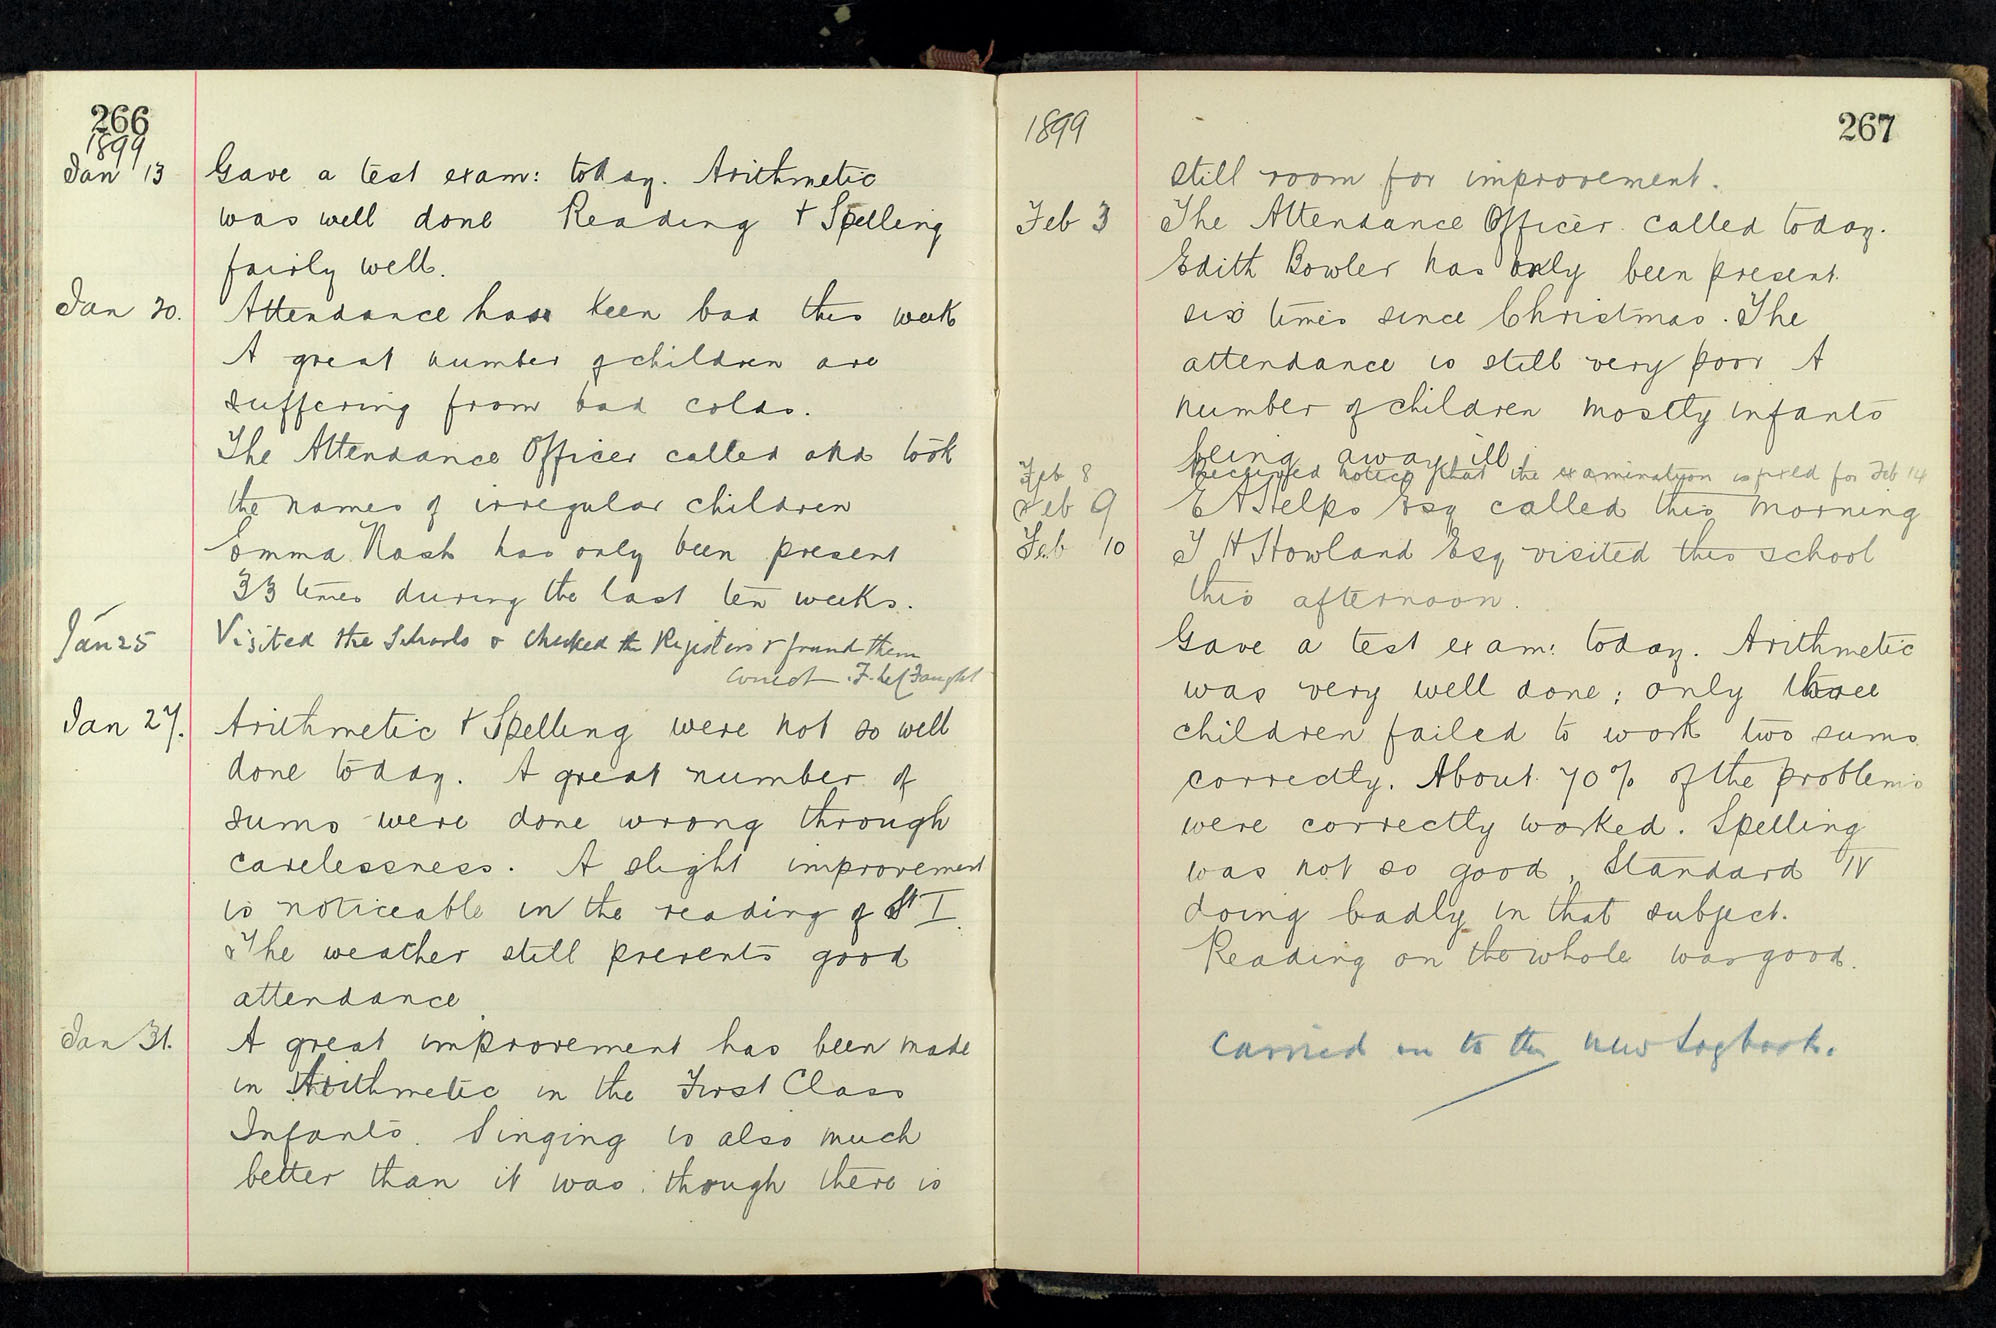 266
1899
Jan 13 Gave a test exam: today. Arithmetic
was well done Reading & Spelling
fairly well.
Jan 20. Attendance has been bad this week
A great number of children are
suffering from bad colds.
The Attendance Officer called and took
the names of irregular children
Emma Nash has only been present
33 times during the last ten weeks.
Jan 25 Visited the Schools & checked the Registers & found them
correct. F.
Jan 27. Arithmetic & Spelling were not so well
done today. A great number of
sums were done wrong through
carelessness. A slight improvement
is noticeable in the reading of St I.
The weather still prevents good
attendance
Jan 31. A great improvement has been made
in Arithmetic in the First Class
Infants. Singing is also much
better than it was, though there is
1899 267
still room for improvement.
Feb 3 The Attendance Officer called today.
Edith Bowler has only been present
six times since Christmas. The
attendance is still very poor A
number of children mostly infants
being away ill.
Feb 8 Received notice that the examination is fixed for Feb 14
Feb 9 E A Helps Esq called this morning
Feb 10 J H Howland Esq visited this school
this afternoon.
Gave a test exam: today. Arithmetic
was very well done; only three
children failed to work two sums
correctly. About 70% of the problems
were correctly worked. Spelling
was not so good, Standard IV
doing badly in that subject.
Reading on the whole was good.
Carried on to the new Logbook.